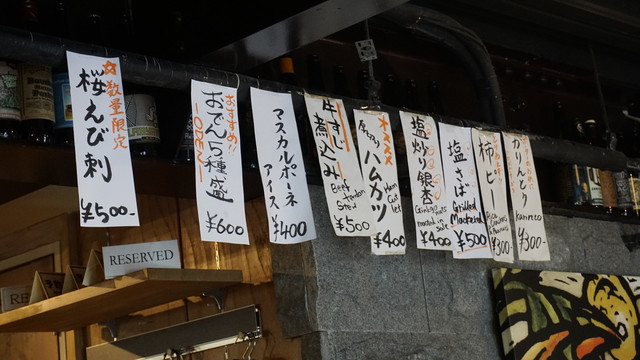 ☆数量限定
桜えび刺
¥500-
おすすめ!!
おでん5種盛
-ODEN-
¥600
マスカルポーネ
アイス
¥400
牛すじ
煮込み
Beef
Tendon
Stew
¥500
ハムカツ
Ham
Cutlet
¥400
塩炒り銀杏
Ginkgo nuts
roasted in salt
¥400
塩さば
Grilled
Mackerel
¥500
柿ピー
¥300-
かりんとう
Karintou
¥300-
RESERVED
RE